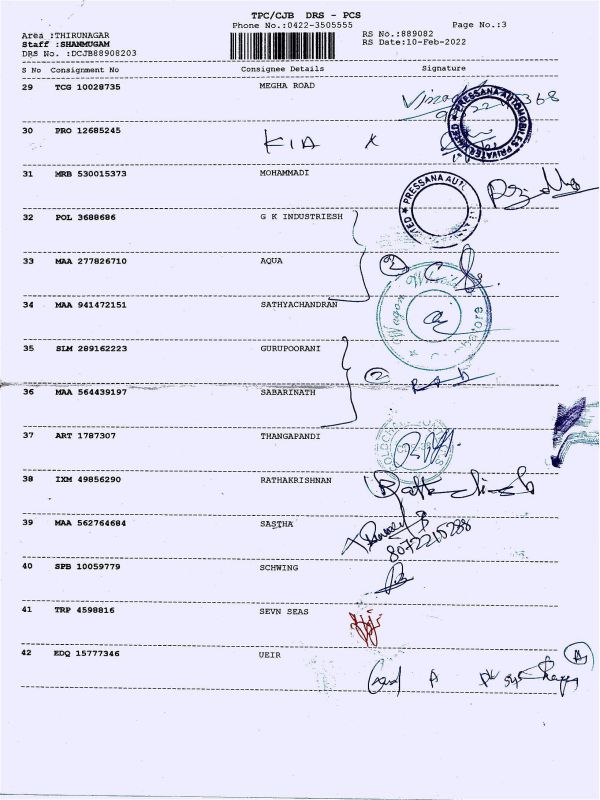 TPC/CJB DRS - PCS
Phone No.:0422-3505555 Page No.:3
Area :THIRUNAGAR RS No.:889082
Staff :SHANMUGAM RS Date:10-Feb-2022
DRS No. :DCJB88908203
S No Consignment No Consignee Details Signature
29 TCG 10028735 MEGHA ROAD
PRESSANA AUTOMOBILES PRIVATE LIMITED
30 PRO 12685245 KIA
31 MRB 530015373 MOHAMMADI
PRESSANA AUT
32 POL 3688686 G K INDUSTRIESH
33 MAA 277826710 AQUA 2
34 MAA 941472151 SATHYACHANDRAN
Wagon
35 SLM 289162223 GURUPOORANI
2
36 MAA 564439197 SABARINATH
37 ART 1787307 THANGAPANDI
38 IXM 49856290 RATHAKRISHNAN
39 MAA 562764684 SASTHA
40 SPB 10059779 SCHWING
41 TRP 4598816 SEVN SEAS
42 EDQ 15777346 UEIR
A